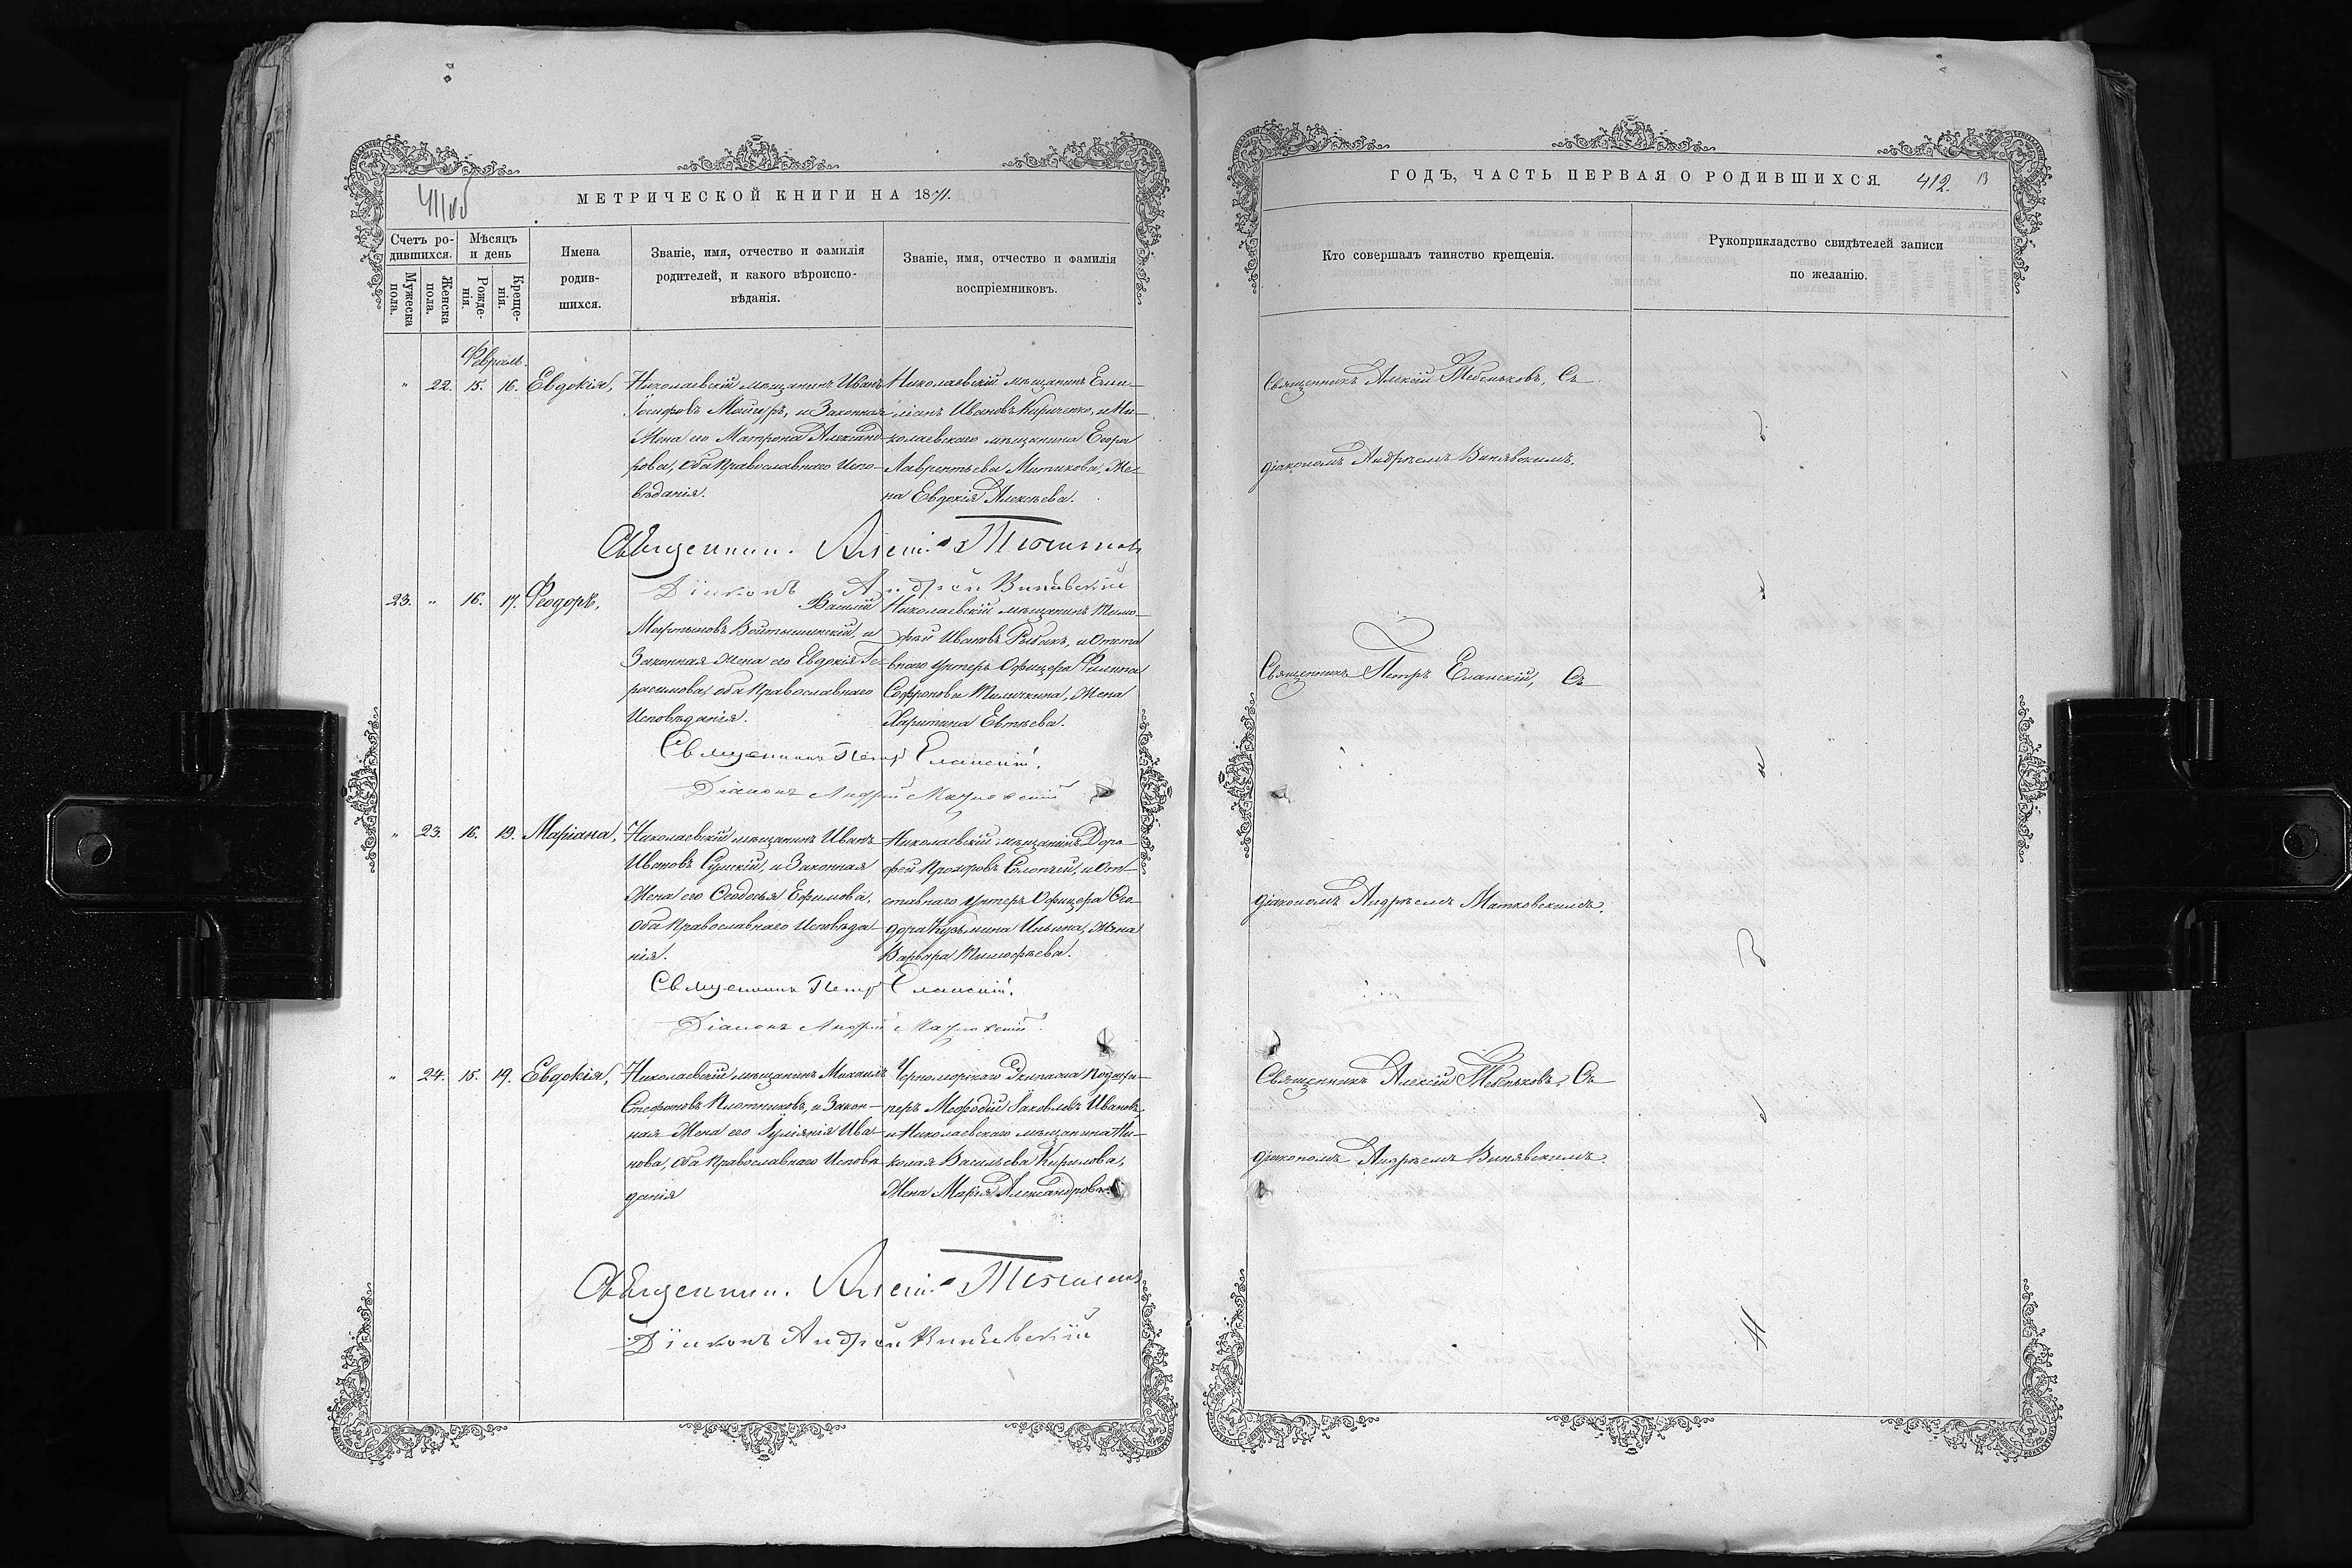 МЕТРИЧЕСКОЙ КНИГИ НА 1871.
Счетъ ро-
дившихся.
Мужеска
пола.
Женска
пола.
Мѣсяцъ
и день
Рожде-
нія.
Креще-
нія.
Имена
родив-
шихся.
Званіе, имя, отчество и фамилія
родителей, и какого вѣроиспо-
вѣданія.
Званіе, имя, отчество и фамилія
воспріемниковъ.
Февраль.
" 22. 15. 16. Евдокія,
Николаевскій мѣщанинъ Иванъ
Іосифовъ и Законная
Жена его Матрона Александ-
рова, оба Православнаго Испо-
вѣданія.
Николаевскій мѣщанинъ Еми-
ліанъ Ивановъ Кириченко, и Ни-
колаевскаго мѣщанина Егора
Лаврентьева Митикова, Же-
на Евдокія Алексѣева.
Священникъ Алексій
Діаконъ Андрей Винявскій
23. " 16. 17. Феодоръ,
Василій
Мартыновъ и
Законная жена его Евдокія Ге-
расимова, оба Православнаго
Исповѣданія.
Николаевскій мѣщанинъ Тимо-
фей Ивановъ Рыбакъ, и Отста
внаго унтеръ Офицера Филипа
Софронова Жена
Харитина Евтѣева.
Священникъ Петръ Еланскій.
Діаконъ Андрей Матковскій
" 23. 16. 19. Маріана,
Николаевскій мѣщанинъ Иванъ
Ивановъ Сумскій, и Законная
Жена его Феодосья Ефимова,
оба Православнаго Исповѣда-
нія.
Николаевскій мѣщанинъ Доро-
фей Прохоровъ и От-
ставнаго унтеръ Офицера Фео-
дора Кузьмина Ильина, Жена
Варвара Тимофѣева.
Священникъ Петръ Еланскій.
Діаконъ Андрей Матковскій
" 24. 15. 19. Евдокія,
Николаевскій мѣщанинъ Михаилъ
Стефановъ Плотниковъ, и Закон-
ная Жена его Іуліанія Ива-
нова, оба Православнаго Исповѣ
данія
Черноморскаго Экипажа
Мефодій Іаковлевъ Ивановъ,
и Николаевскаго мѣщанина Ни-
колая Васильева Кирилова,
Жена Марія Александрова.
Священникъ Алексій
Діаконъ Андрей Винявскій
ГОДЪ, ЧАСТЬ ПЕРВАЯ О РОДИВШИХСЯ. 412.
Кто совершалъ таинство крещенія.
Рукоприкладство свидѣтелей записи
по желанію.
Священникъ Алексій Тебеньковъ, Съ
діакономъ Андреемъ Винявскимъ.
Священникъ Петръ Еланскій, Съ
діакономъ Андреемъ Матковскимъ.
Священникъ Алексій Тебеньковъ, Съ
діакономъ Андреемъ Винявскимъ.